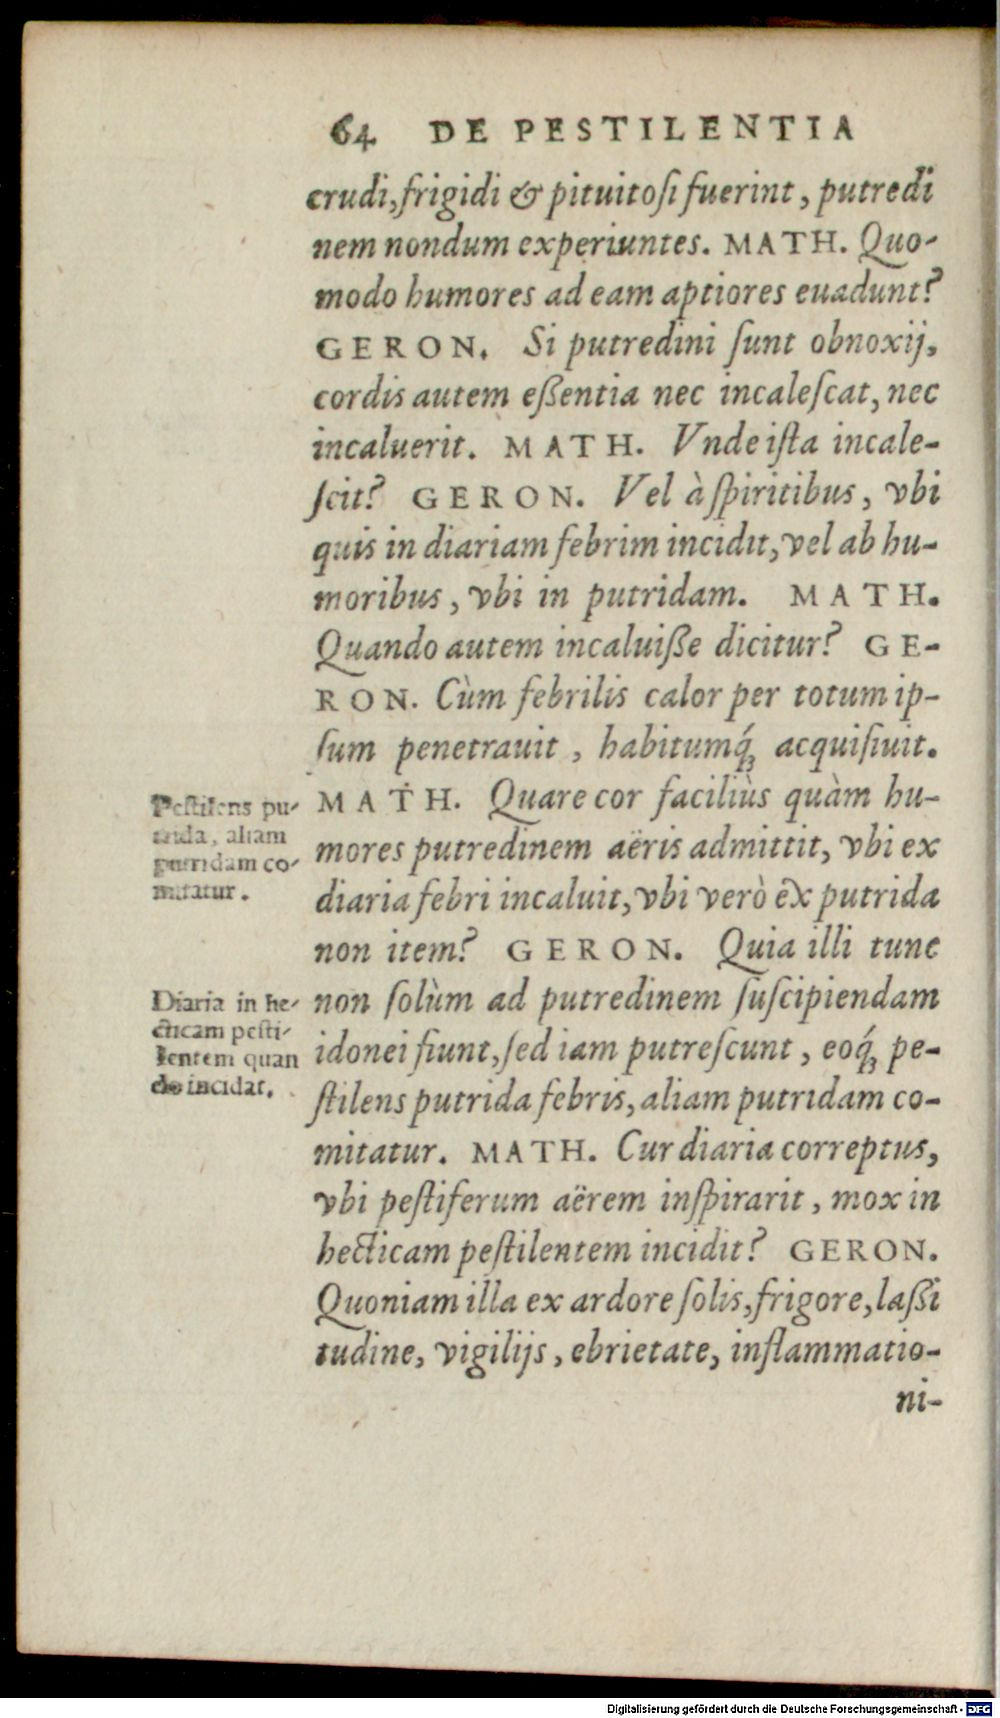 64 DE PESTILENTIA
crudi, frigidi & pituitosi fuerint, putredi
nem nondum experiuntes. MATH. Quo-
modo humores ad eam aptiores euadunt?
GERON. Si putredini ſunt obnoxij,
cordis autem eßentia nec incaleſcat, nec
incaluerit. MATH. Vnde iſta incale-
ſcit? GERON. Vel à ſpiritibus, vbi
quis in diariam febrim incidit, vel ab hu-
moribus, vbi in putridam. MATH.
Quando autem incaluiße dicitur? GE-
RON. Cùm febrilis calor per totum ip-
ſum penetrauit, habitumq́ꝫ acquiſiuit.
MATH. Quare cor faciliùs quàm hu-
mores putredinem aëris admittit, vbi ex
diaria febri incaluit, vbi verò ex putrida
non item? GERON. Quia illi tunc
non ſolùm ad putredinem ſuſcipiendam
idonei fiunt, ſed iam putreſcunt, eoq́ꝫ pe-
ſtilens putrida febris, aliam putridam co-
mitatur. MATH. Cur diaria correptus,
vbi peſtiferum aërem inſpirarit, mox in
hecticam peſtilentem incidit? GERON.
Quoniam illa ex ardore ſolis, frigore, laßi
tudine, vigilijs, ebrietate, inflammatio-
ni-
Peſtilens pu-
trida, aliam
putridam co-
mitatur.
Diaria in he-
cticam peſti-
lentem quan
do incidat.
Digitalisierung gefördert durch die Deutsche Forschungsgemeinschaft - DFG